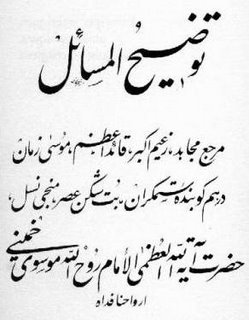 توضیح المسائل
مرجع مجاهد، زعیم اکبر، قائد اعظم، موسی زمان
درهم کوبنده ستمگران، بت شکن عصر، منجی نسل،
حضرت آیة الله العظمی الامام روح الله موسوی خمینی
ارواحنا فداه